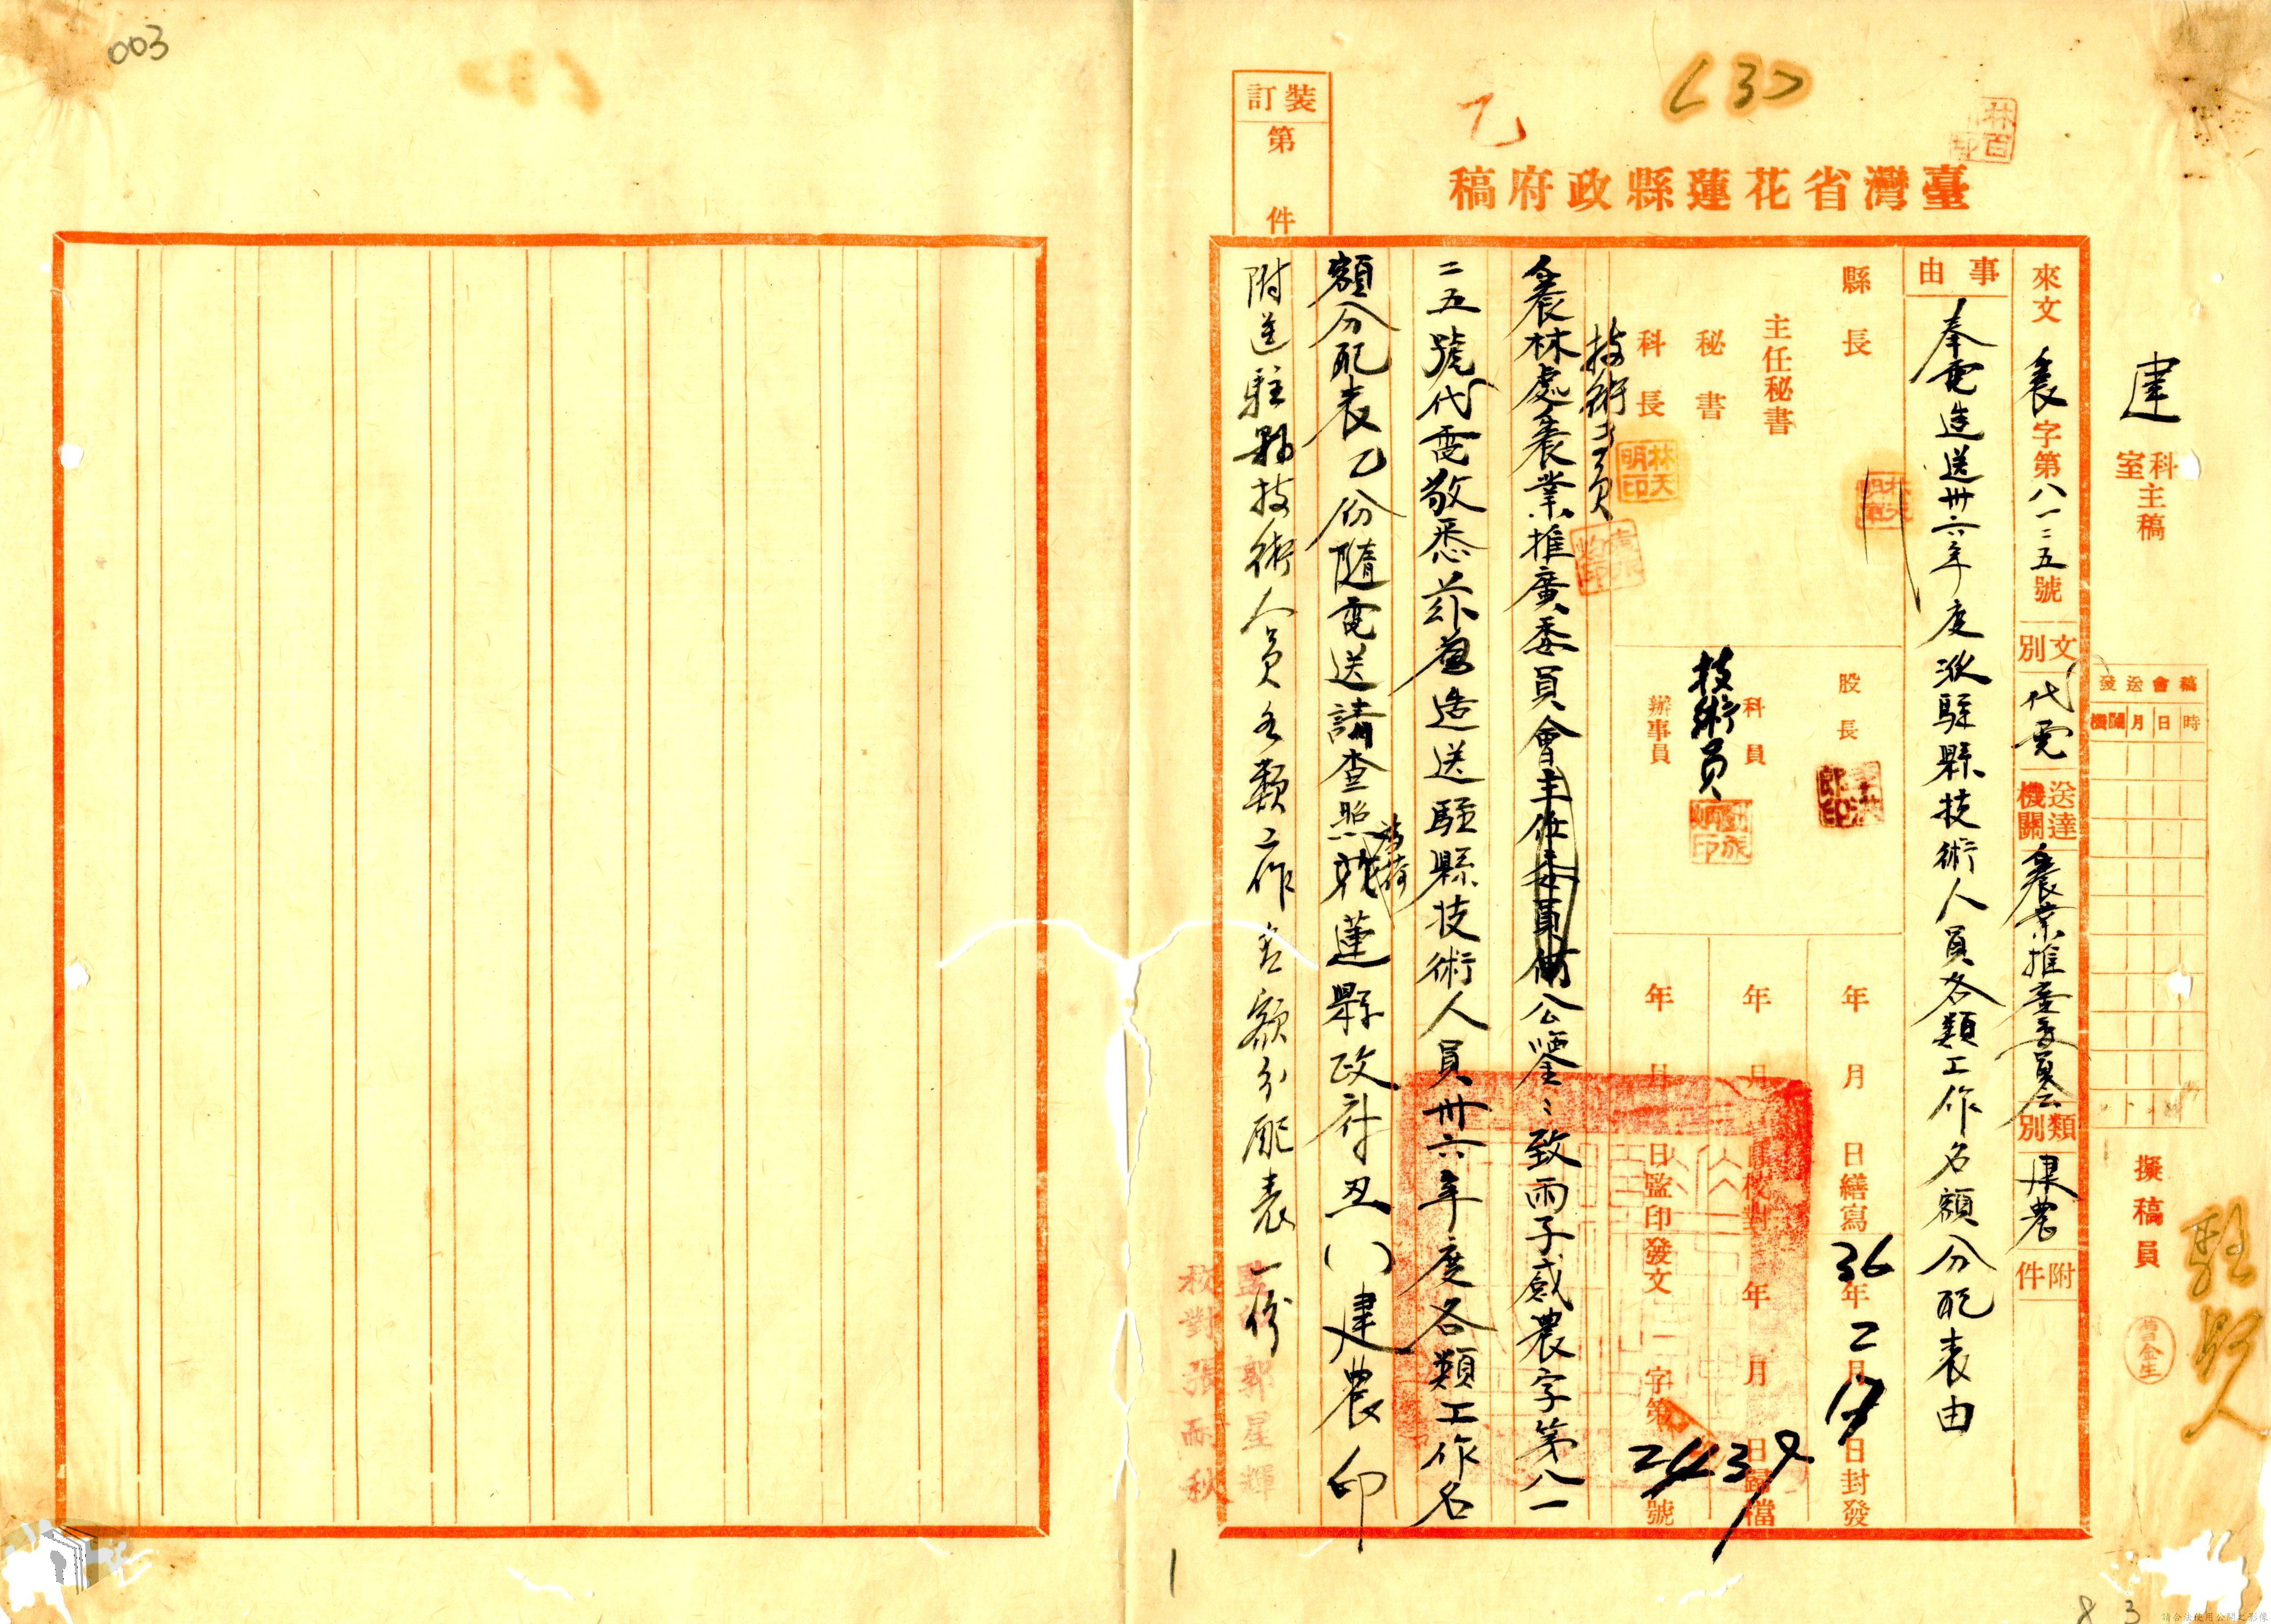 003
〈3〉
乙
裝訂第 件
臺灣省花蓮縣政府稿
建 科室主稿
擬稿員
曾金生
稿會送發
時日月機關
來文 農字第八一二五號 文別 代電 送達機關 農業推廣委員會 類別 建農 附件
事由 奉電造送卅六年度派駐縣技術人員各類工作名額分配表由
縣長
主任秘書
秘書
科長
林天明印
技術員
股長
科員
技術員
辦事員
年 月 日繕寫 36年2月17日封發
年 月 日校對 年 月 日歸檔
年 月 日監印 發文 字第 號
農林處農業推廣委員會主任委員公鑒:致雨子感農字第八一
二五號代電敬悉茲造送駐縣技術人員卅六年度各類工作名
額分配表乙份隨電送請查照為荷花蓮縣政府丑( )建農印
附送駐縣技術人員各類工作名額分配表一份
監印郭星輝
校對張耐秋
1
8 3
請合法使用公開之影像